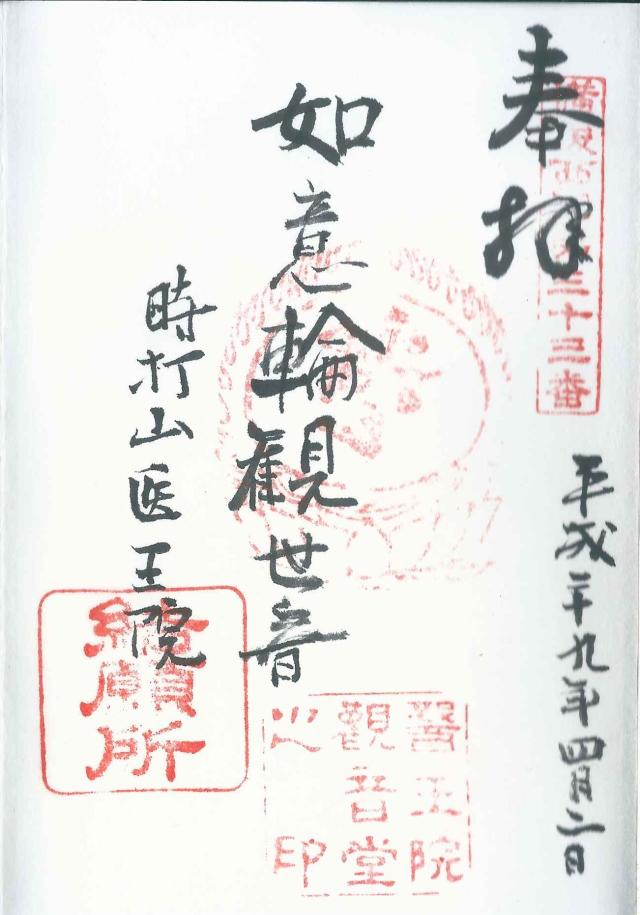 奉拝
三十三番
平成二十九年四月二日
如意輪観世音
醫王院
観音堂
之印
時打山医王院
願所